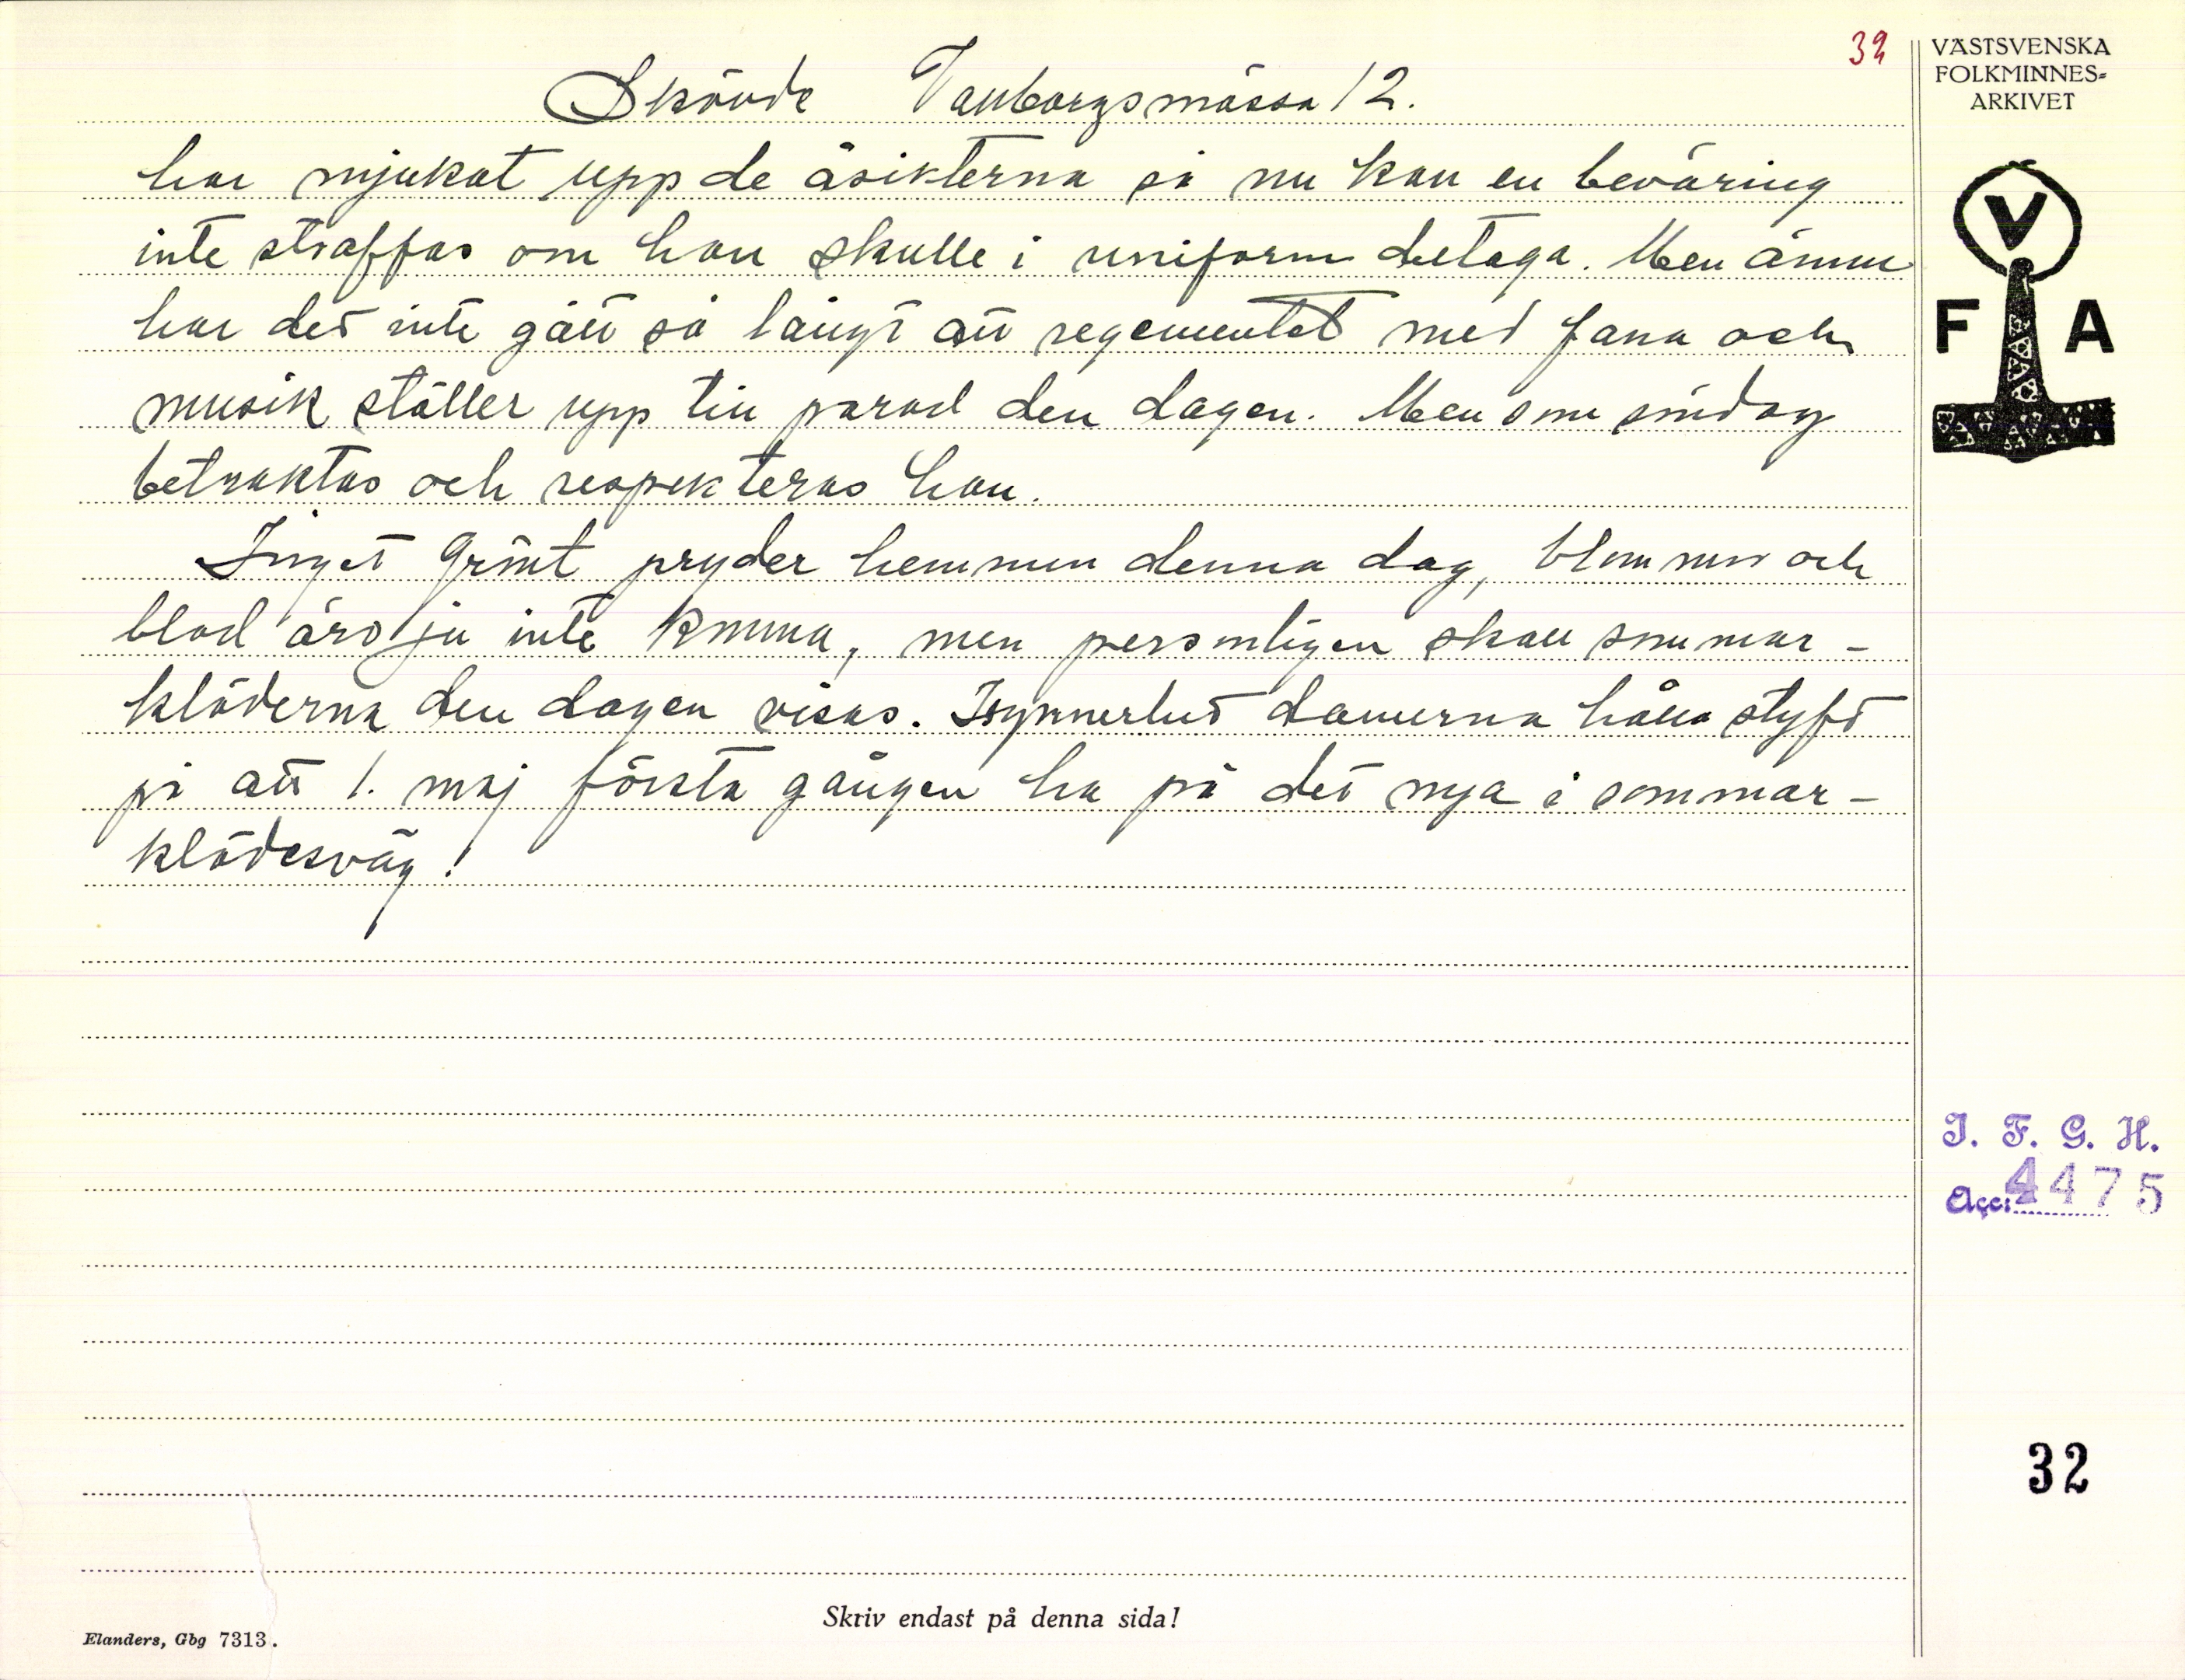 32
Skövde Valborgsmässa 12.
har mjukat upp de åsikterna så nu kan en beväring
inte straffas om han skulle i uniform deltaga. Men ännu
har det inte gått så långt att regementet med fana och
musik ställer upp till parad den dagen. Men som söndag
betraktas och respekteras han.
Inget grönt pryder hemmen denna dag, blommor och
blad äro ju inte komna, men personligen skall sommar-
kläderna den dagen visas. Isynnerhet damerna hålla styft
på att 1. maj första gången ha på det nya i sommar-
klädesväg!
VÄSTSVENSKA
FOLKMINNES-
ARKIVET
V
F A
I. F. G. H.
Acc: 4475
32
Skriv endast på denna sida!
Elanders, Gbg 7313.